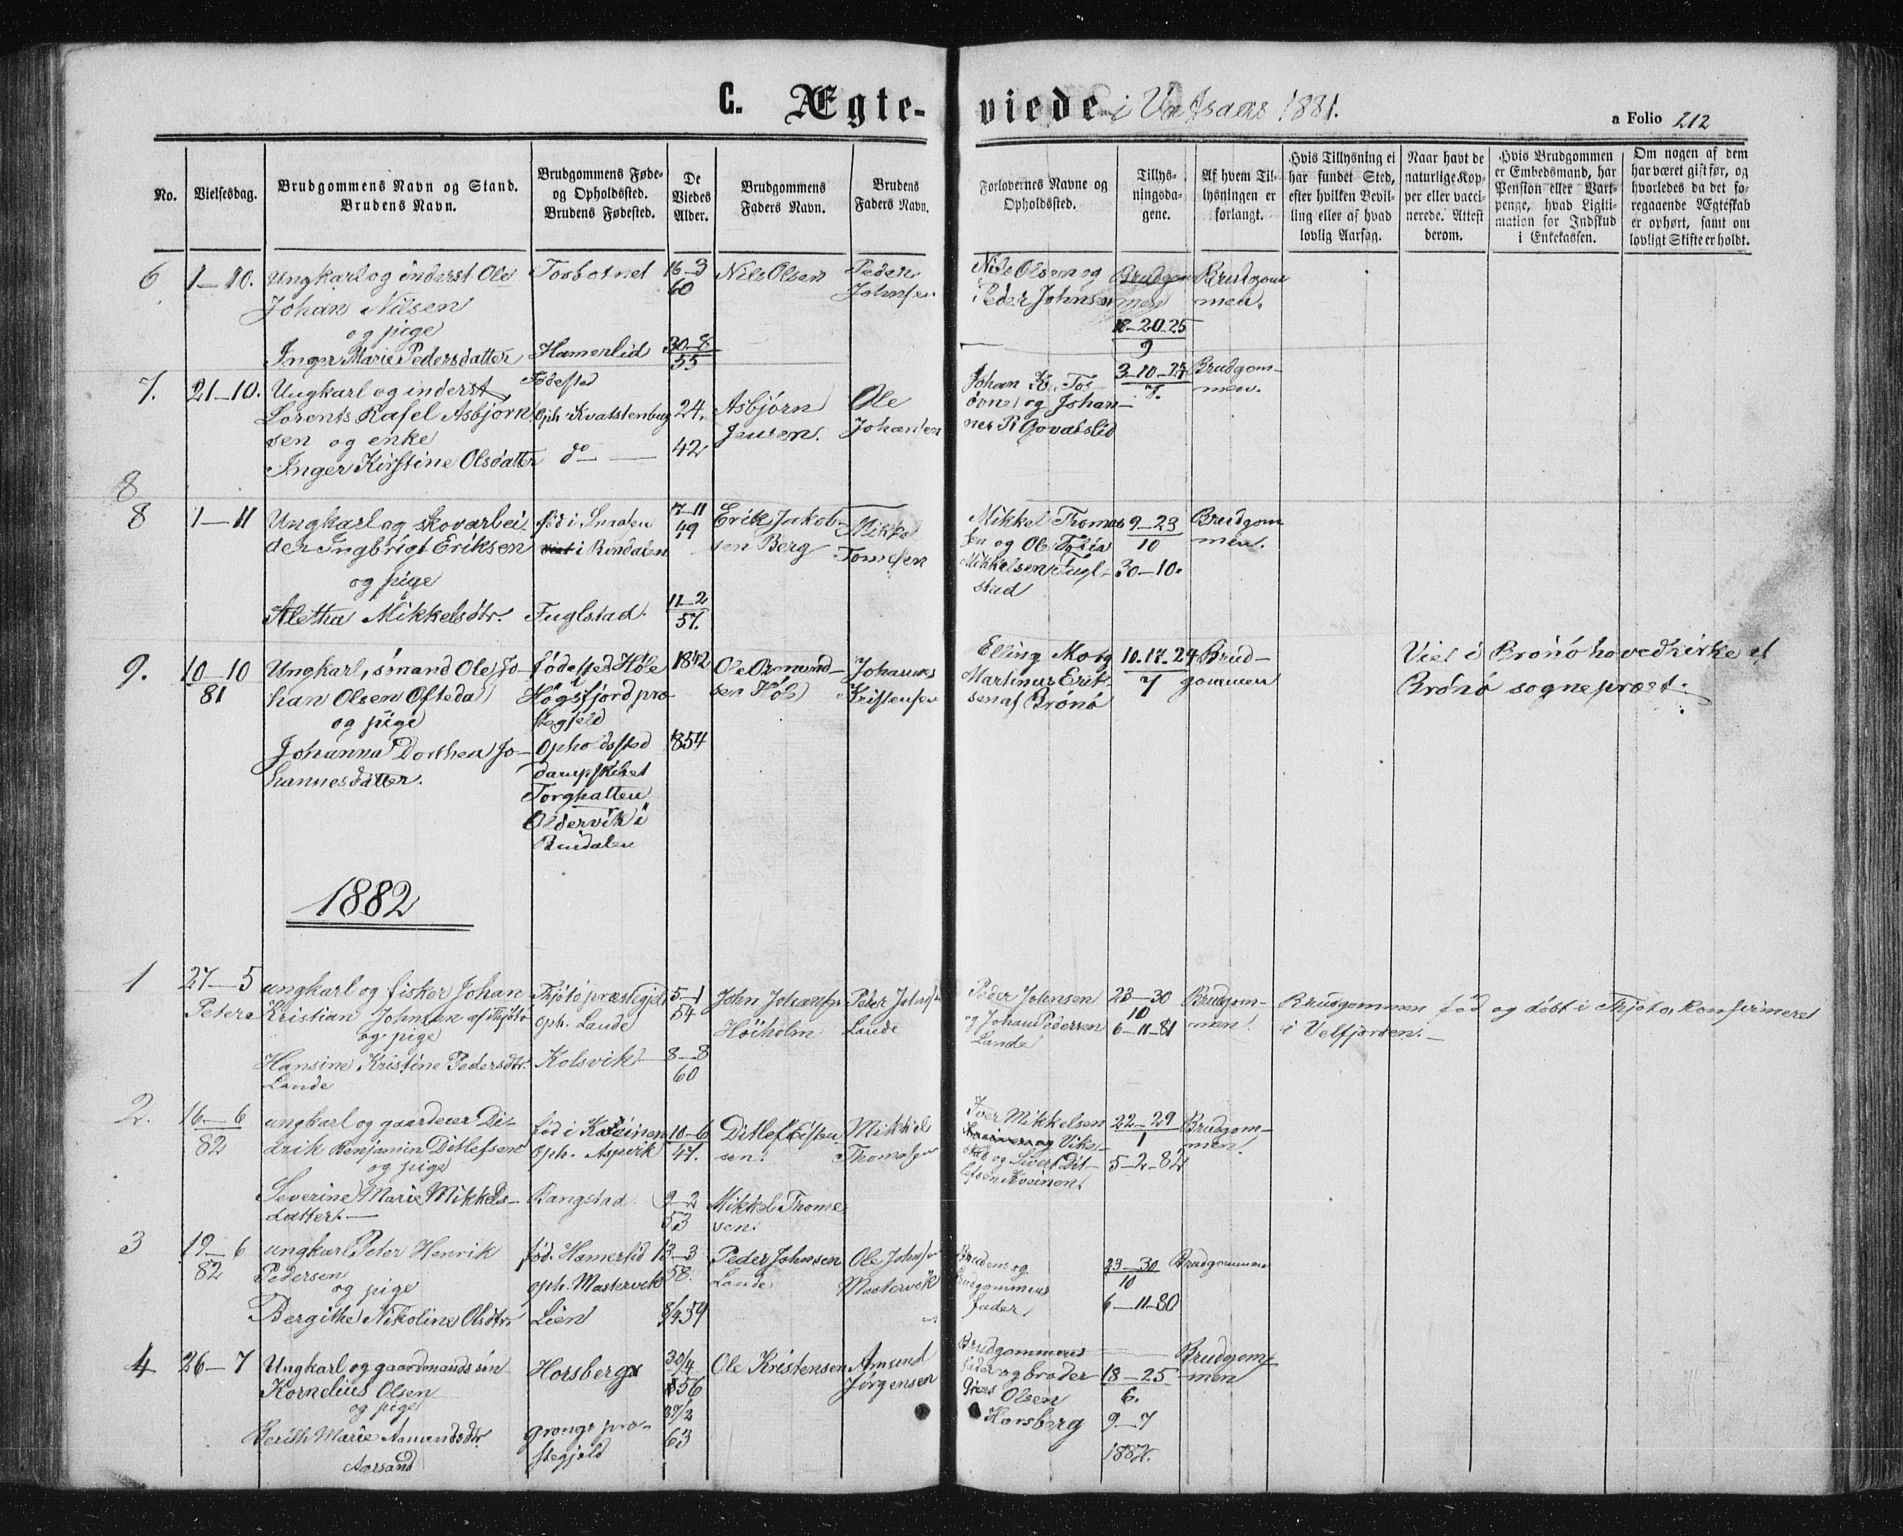 C. Ægte-
viede i Vasaas 1881.
a Folio 212
No.
Vielsesdag.
Brudgommens Navn og Stand.
Brudens Navn.
Brudgommens Føde-
og Opholdssted.
Brudens Fødested.
De
Viedes
Alder.
Brudgommens
Faders Navn.
Brudens
Faders Navn.
Forlovernes Navne og
Opholdssted.
Tillys-
ningsda-
gene.
Af hvem Til-
lysningen er
forlangt.
Hvis Tillysning ei
har fundet Sted,
efter hvilken Bevil-
ling eller af hvad
lovlig Aarsag.
Naar havt de
naturlige Kop-
per eller vacci-
nerede. Attest
derom.
Hvis Brudgommen
er Embedsmand, har
Pension eller Vart-
penge, hvad Ligiti-
mation for Indskud
i Enkekassen.
Om nogen af dem
har været gift før, og
hvorledes da det fo-
regaaende Ægteskab
er ophørt, samt om
lovligt Skifte er holdt.
6
1-10.
Ungkarl og inderst Ole
Johan Nilsen
og pige
Inger Marie Pedersdatter
Tosbotnet
Hamerlid
16-3
60
30-8
55
Nils Olsen
Peder
Johnsen
Nils Olsen og
Peder Johnsen
Brudgom
men
18-20-25
9
Brudgom
men.
7.
21-10.
Ungkarl og inderst
Lorents Kasel Asbjørn
sen og enke
Inger Kirstine Olsdatter
Fødested
Oph. Kvatstenbug
do
24.
42
Asbjørn
Jensen.
Ole
Johansen
Johan
og Johan-
nes R
3-10-24
7.
Brudgom-
men.
8
8
1-11
Ungkarl og skovarbei
der Ingbrigt Eriksen
og pige
Aletha Mikkelsdtr.
fød i
i Bindalen
Fuglstad.
7-11
49
11-2
57.
Erik Jakob-
sen Berg
Mikkel
Tomsen
Mikkel Thomas
sen og Ole Tobia
Mikkelsen Fugl-
stad
9-23
10
30-10.
Brudgom
men.
9.
10-10
81
Ungkarl, sømand Ole Jo-
han Olsen Oftedal
og pige
Johanna Dorthea Jo-
hannesdatter.
fødested Høle
i
Høgsfjord præ-
stegjeld
Opholdssted
dampskibet
Torghatten
Oldervik i
Bindalen
1842
1854
Ole Osmund-
sen Høle
Johannes
Kristensen
Elling Moe og
Martinus Erik-
sen af Brønø
10.17.24
7
Brud-
gommen
Viet i Brønø hovedkirke af
Brønø sognepræst.
1882
1
27-5
ungkarl og fisker Johan
Peter Kristian Johnsen af Thjøtø
og pige
Hansine Kristine Pedersdtr.
Lande
Thjøtø præstegjeld
oph. Lande
Kolsvik
5-1
54
8-8
60
John Johansen
Høiholm
Peter Johnsen
Lande
Peder Johnsen
og Johan Pedersen
Lande
23-30
10
6-11-81
Brudgom-
men.
Brudgommen fød og døbt i Thjøtø, konfirmeret
i Velfjorden.
2.
16-6
82
ungkarl og gaardeier Di-
drik Benjamin Ditlefsen
og pige
Severine Marie Mikkels-
datter.
fød i
oph. Aspvik
Bangstad
10-6
47.
9-2
53
Ditlef Eisten
sen.
Mikkel Thome
sen.
Mikkel
Thomasen
Iver Mikkelsen
Vik-
stad og Sivert Dit-
lefsen
22-29
1
5-2-82
Brudgom-
men.
3
19-6
82
ungkarl Peter Henrik
Pedersen
og pige
Bergithe Nikoline Olsdtr.
fød. Hamerlid
oph. Mastervik
Lien
13-3
58.
8/4 59
Peder Johnsen
Lande
Ole Johnsen
Mastervik
Brudens og
Brudgommens
fader
23-30
10
6-11-80
Brudgommen
4
26-7
Ungkarl og gaardmands søn
Kornelius Olsen
og pige
Berith Marie Aamundsdtr.
Aarsand
Horsberg
grongs præ-
stegjeld
30/4
56
63
Ole Kristensen
Amund
Jørgensen
Brudgommens
fader og broder
Olsen
Horsberg
18-25
6.
9-7
1882.
Brudgom-
men